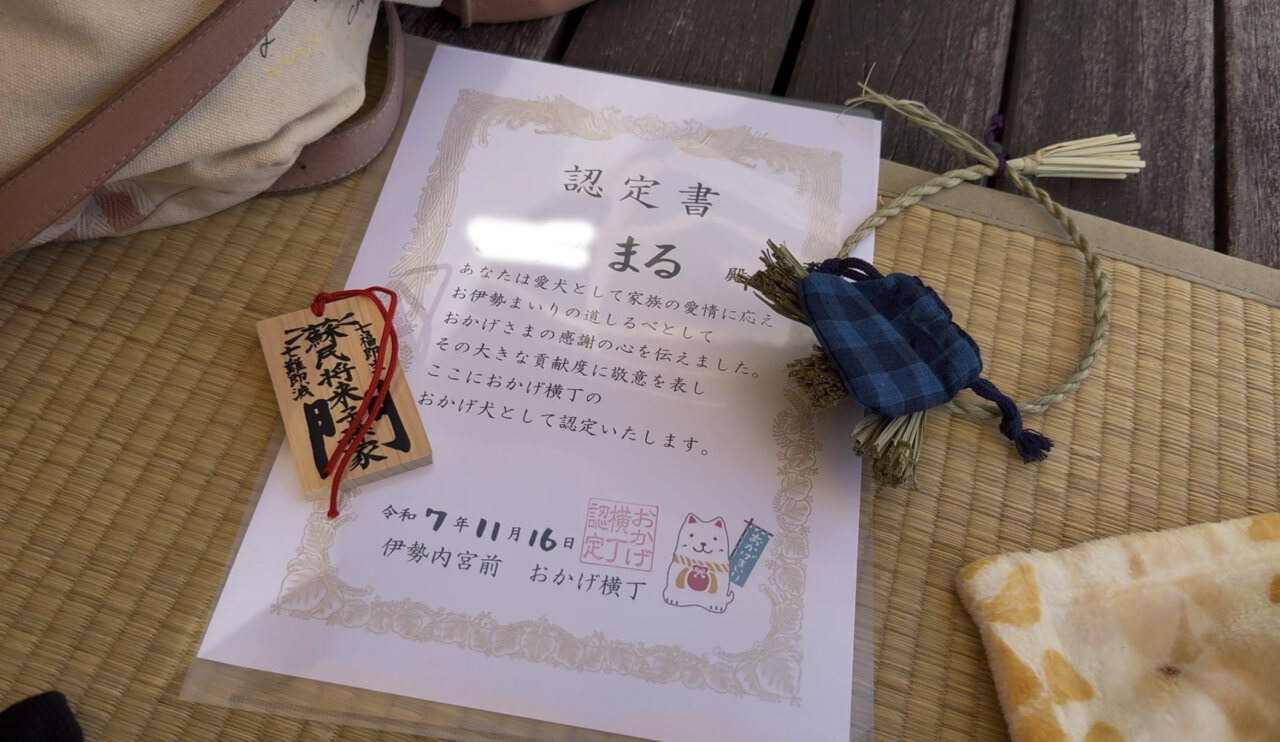 認定書
まる 殿
あなたは愛犬として家族の愛情に応え
お伊勢まいりの道しるべとして
おかげさまの感謝の心を伝えました。
その大きな貢献度に敬意を表し
ここにおかげ横丁の
おかげ犬として認定いたします。
令和7年11月16日
伊勢内宮前 おかげ横丁
おかげ
横丁
認定
おかげまいり
七難即滅
蘇民将来
家
門